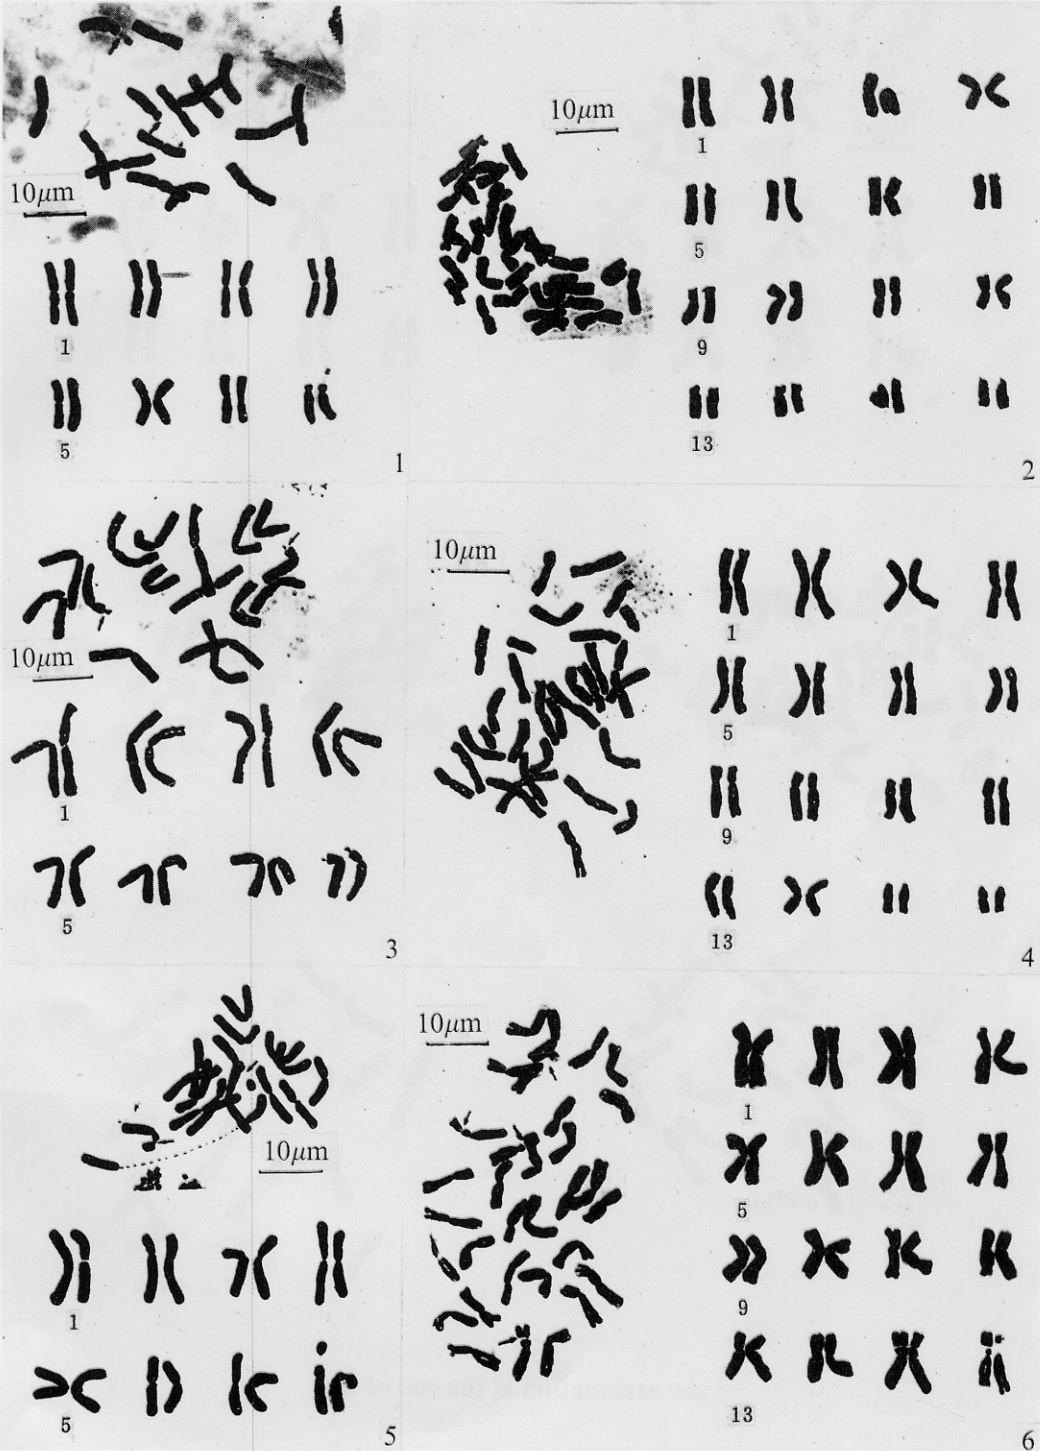 10μm
1
5
1
10μm
1
5
9
13
2
10μm
1
5
3
10μm
1
5
9
13
4
10μm
1
5
5
10μm
1
5
9
13
6